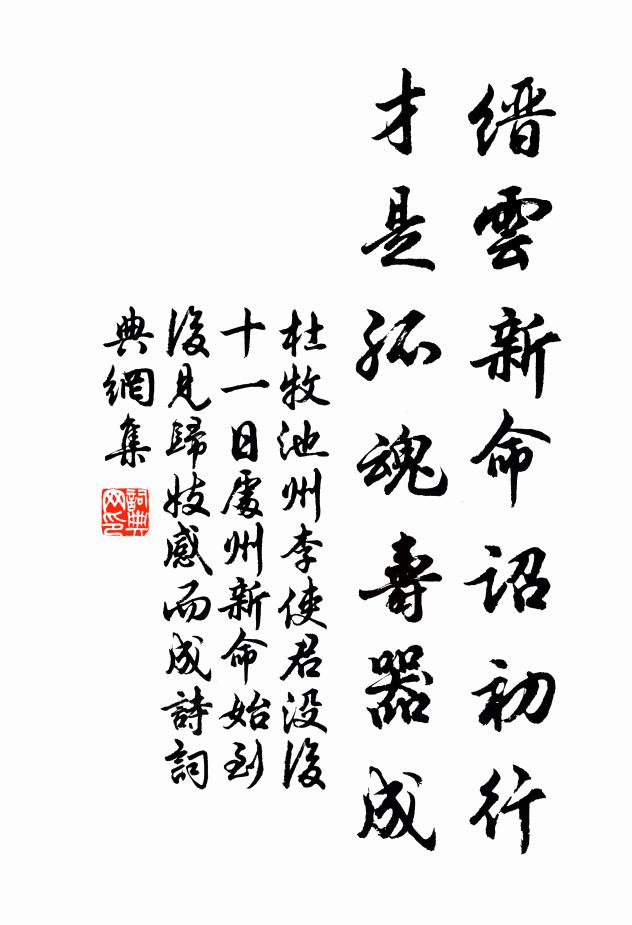 縉雲新命詔初行
才是孤魂壽器成
杜牧池州李使君没後
十一日處州新命始到
後見歸妓感而成詩詞
典網集
詞典
网印